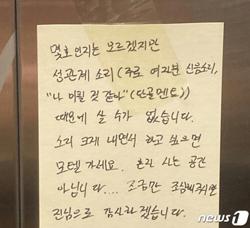 몇호인지는 모르겠지만
성관계 소리(주로 여자분 신음소리,
"나 미칠 것 같아"(단골멘트))
때문에 살 수가 없습니다.
소리 크게 내면서 하고 싶으면
모텔 가세요. 혼자 사는 공간
아닙니다.... 조금만 조심해주시면
진심으로 감사하겠습니다.
news1